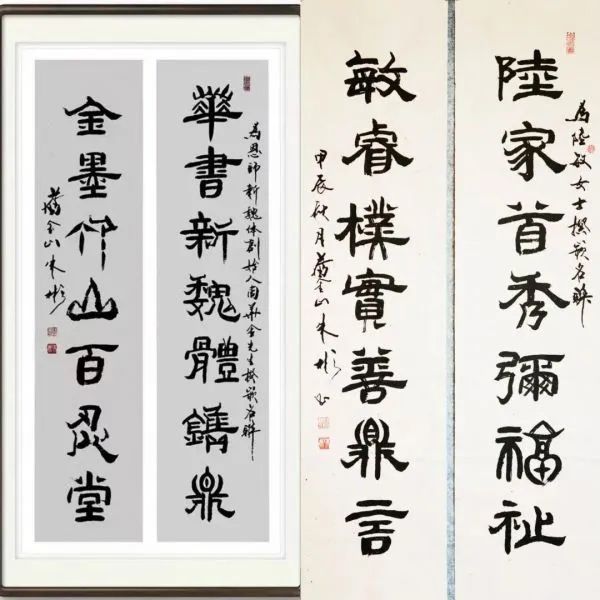 華書新魏體鐫鼎
為恩師新魏体創始人周華金先生撰嵌名聯
金墨山百堂
舊金山朱彬
陸家首秀彌福祉
為陸敏女士撰嵌名聯
敏睿樸實善鼎言
甲辰秋月舊金山朱彬书